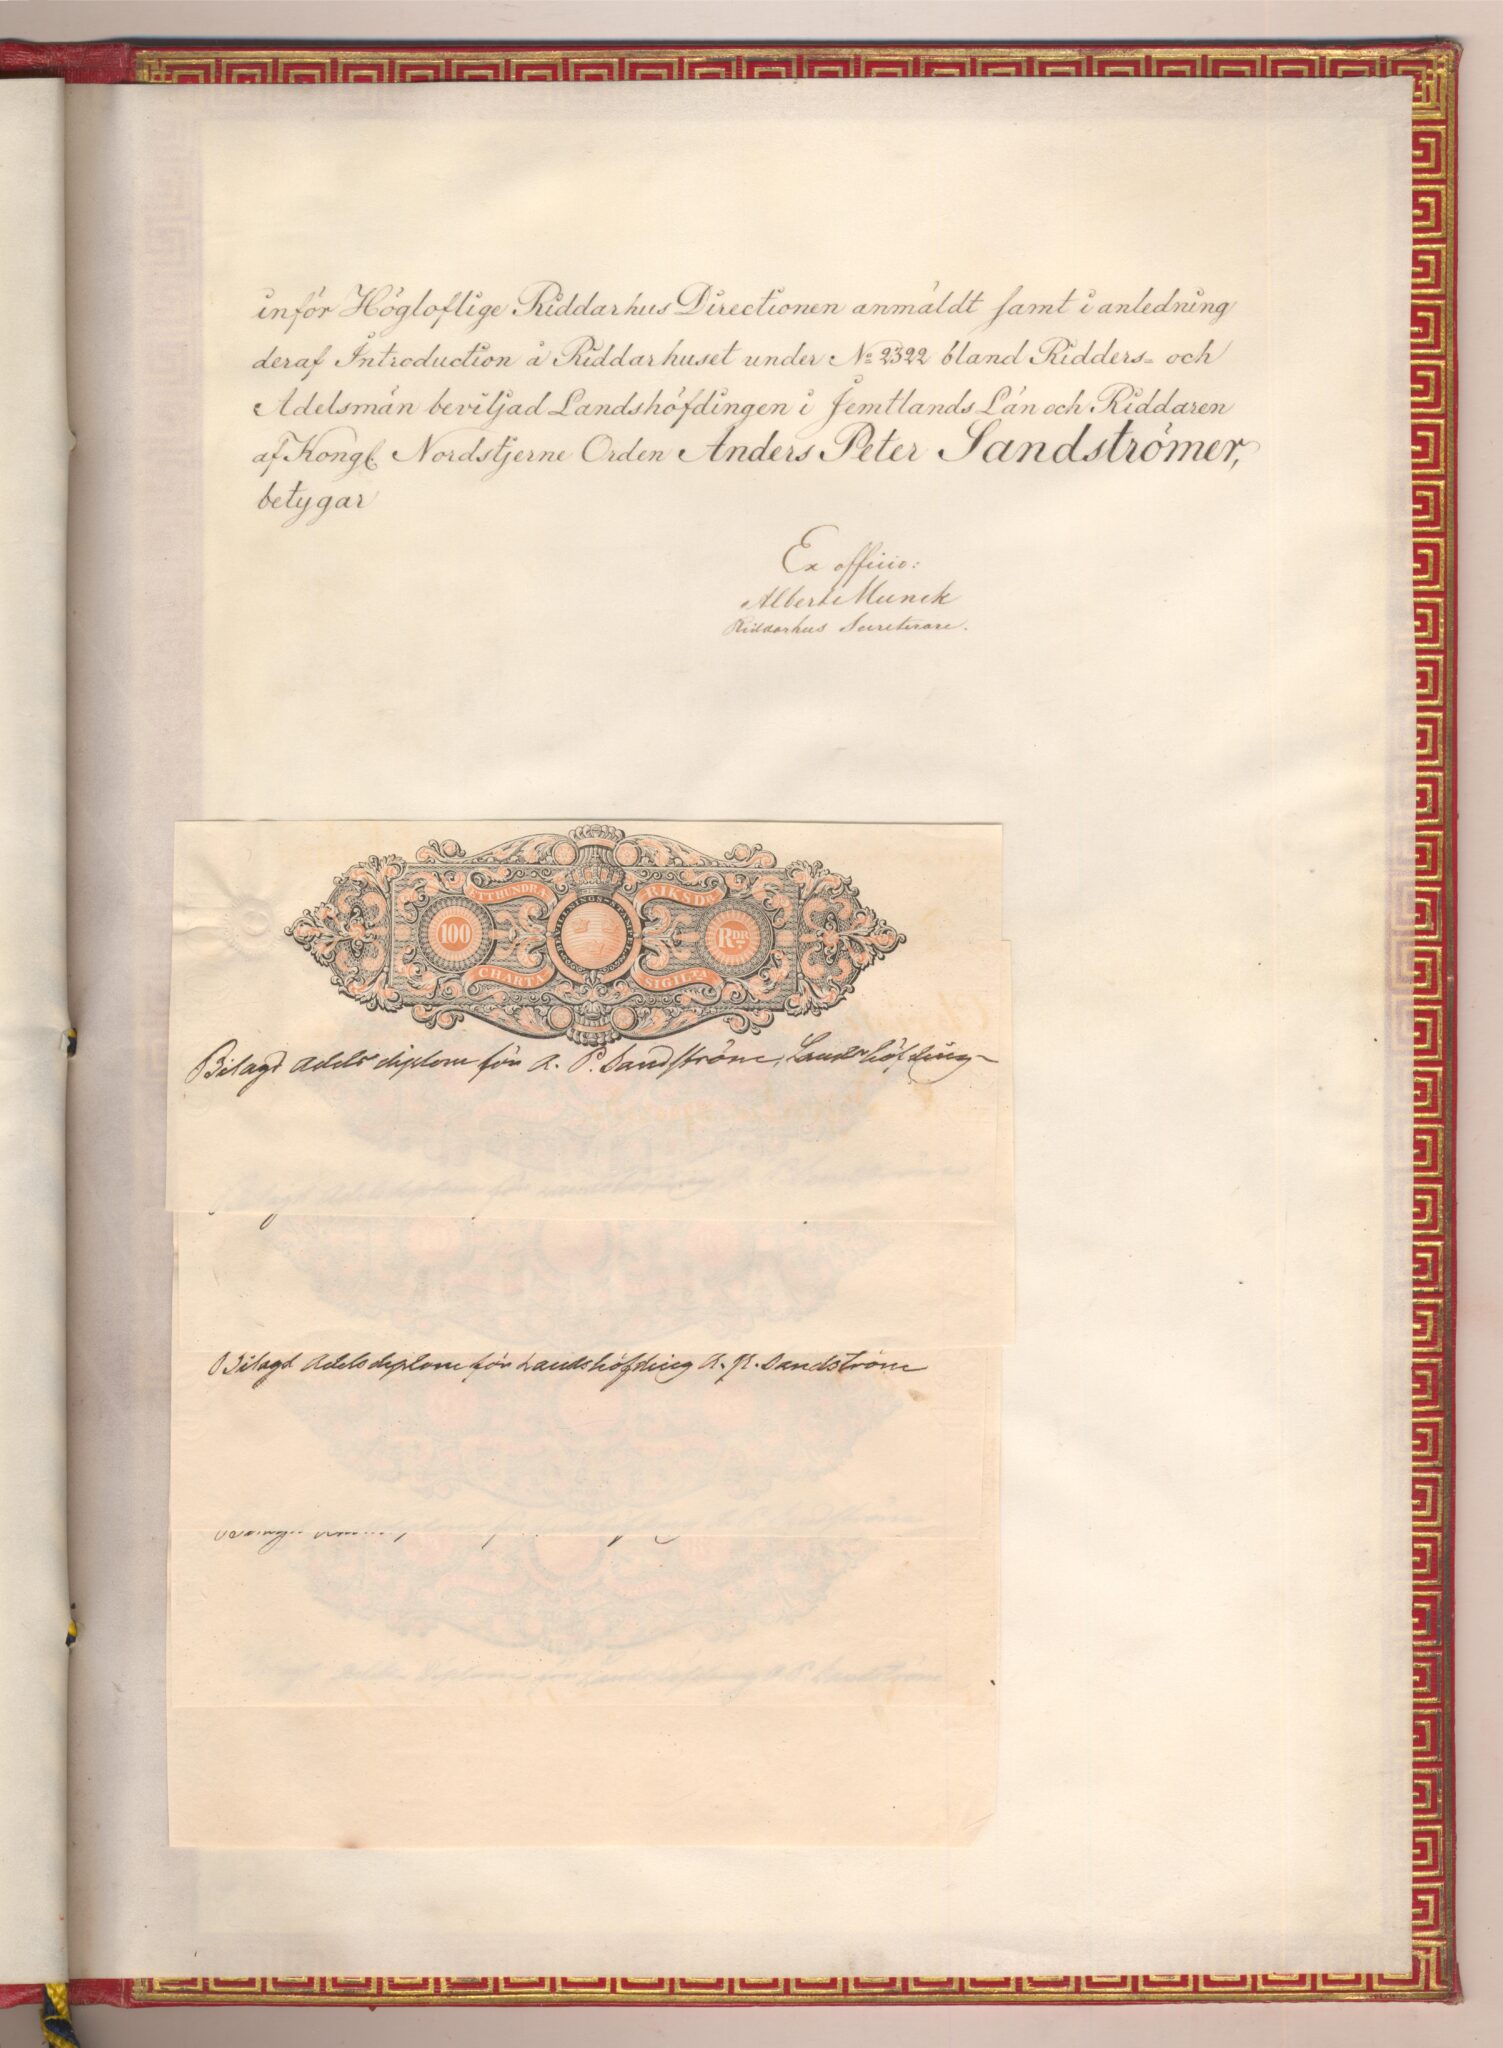 inför Högloflige Riddarhus Directionen anmäldt samt i anledning
deraf Introduction å Riddarhuset under No 2322 bland Ridders= och
Adelsmän beviljad Landshöfdingen i Jemtlands Län och Riddaren
af Kongl. Nordstjerne Orden Anders Peter Sandströmer,
betygar
Ex officio:
Albert Munck
Riddarhus Secreterare.
ETTHUNDRA RIKSDR
100
BEVILLNINGS-STÄMPEL
RDR
CHARTA SIGILTA
Bilagd Adelsdiplom för A. P. Sandström, Landshöfding
Bilagd Adelsdiplom för Landshöfding A. P. Sandström